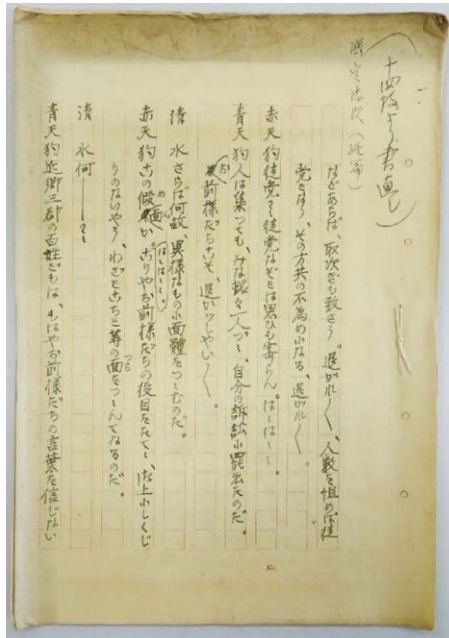 (十四段より書直し)
國定忠次(続篇)
などあらば、取次ぎも致さう。退がれ〱、人数を恃めば徒
党となり、その方共の不為めになる、退がれ〱。
赤天狗 徒党々々徒党などとは思ひも寄らん。はゝはゝゝ
青天狗 人は集つても、みな銘々一人づゝ、自分の訴訟に罷出たのだ。
お前様だちこそ、退がツしやい〱。
清水 さらば何故、異様なもの小面體をつゝむのだ。
赤天狗 この假面か。はゝはゝゝ。こりやお前様だちの役目をたてゝ、お上にしくじ
りのないやう、わざとこちと等の面をつゝんでゐるのだ。
清水 何――ゝゝ
青天狗 近郷三群の百姓どもは、もはやお前様だちの言葉を信じない